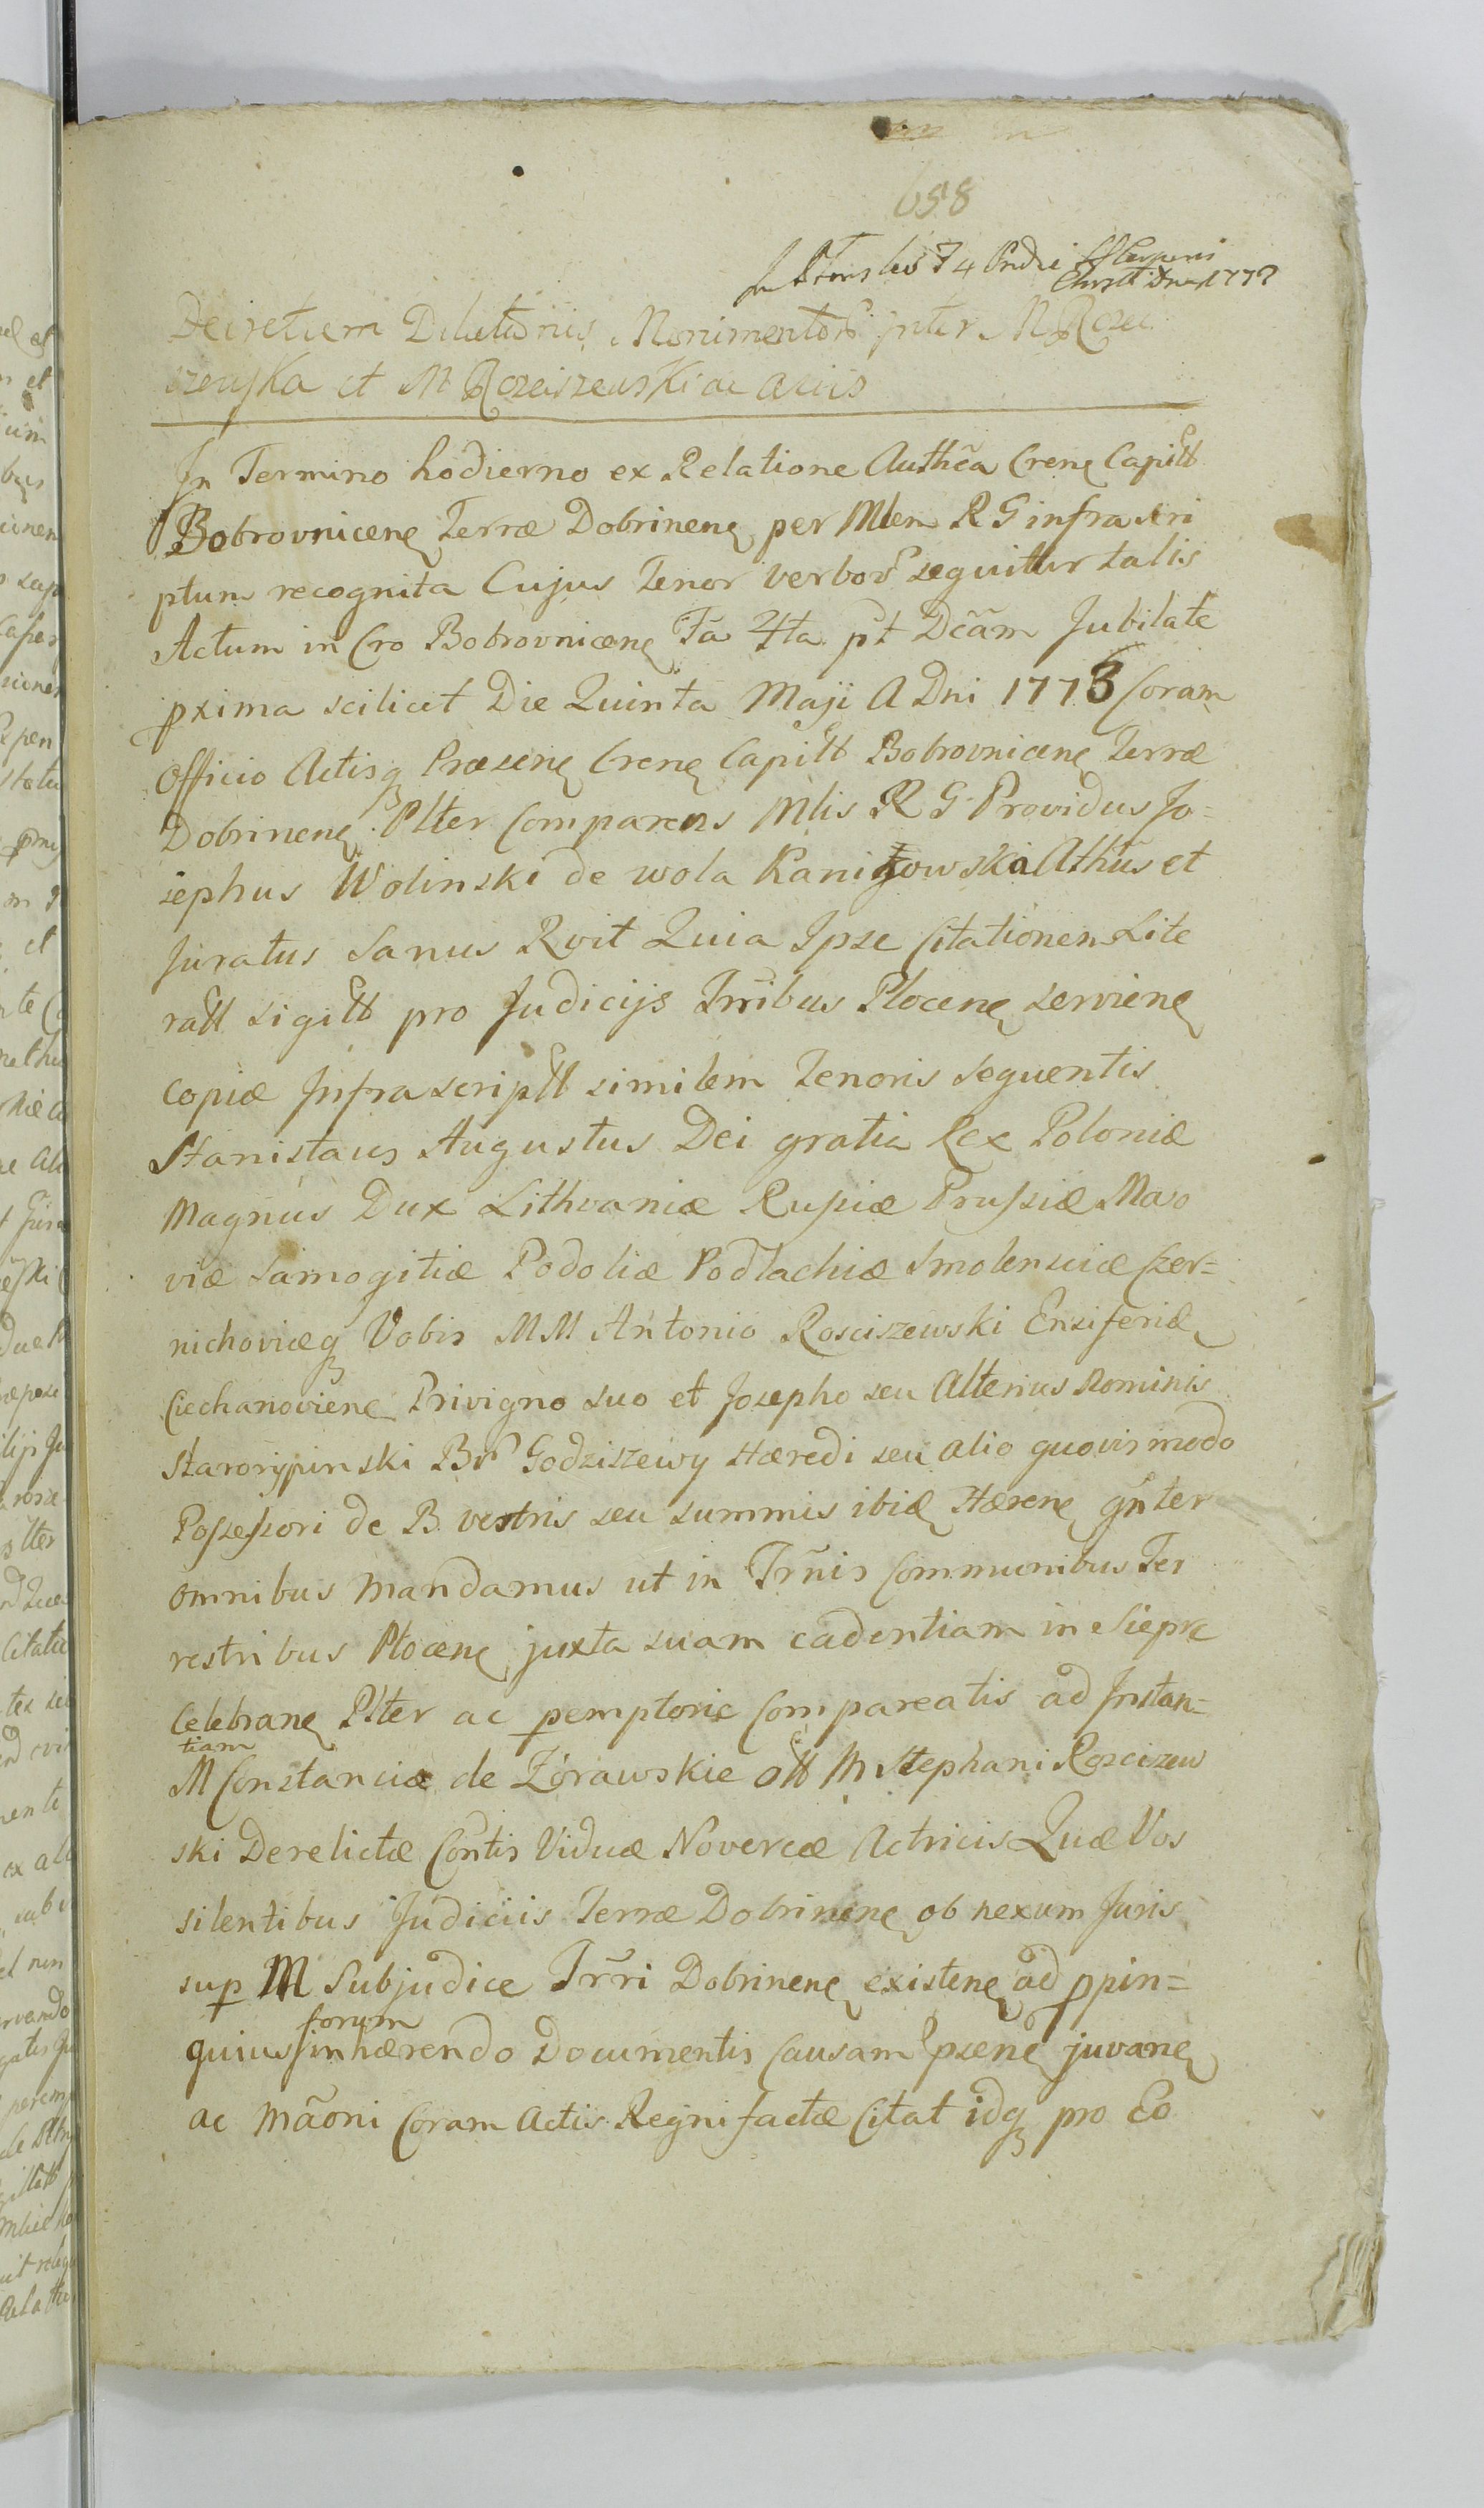 658
Decretum Dilationis Munimentor inter M Rosci
szewska et M Rosciszewski ac alios
In Termino hodierno ex Relatione Authca Crene Capitt
Bobrovnicene Terræ Dobrinene per Mlem R G infra scri
ptum recognita Cujus Tenor verbor sequitur talis
Actum in Cro Bobrovnicene Fa 4ta pt Dcam Jubilate
pxima scilicet Die Quinta Maji A Dni 1773 Coram
Officio Actisq Præsene Crene Capitt Bobrovnicene Terræ
Dobrinene Plter Comparens Mlis R G Providus Jo=
sephus Wolinski de wola Kanigowska Athus et
Juratus Sanus Rvit Quia Ipse Citationem Lite
ratt sigitt pro Judicijs Trribus Plocene serviene
copiæ Infra scriptt similem Tenoris sequentis
Stanislaus Augustus Dei gratia Rex Poloniæ
Magnus Dux Lithvaniæ Russiæ Prussiæ Maso
viæ Samogitiæ Podoliæ Podlachiæ Smolensciæ Czer=
nichoviæq Vobis MM Antonio Rosciszewski Ensiferidæ
Ciechanoviene Privigno suo et Josepho seu Alterius Nominis
Starorypinski Br Godziszewy Hæredi seu alio quovis modo
Possessori de B vestris seu summis ibid Hærene gnter
omnibus Mandamus ut in Trnis Communibus Ter
restribus Plocene juxta suam cadentiam in Sieprc
Celebrane Plter ac pemptorie Compareatis ad Instan=
tiam
M Constanciæ de Zórawskie ott M Stephani Rosciszew
ski Derelictæ Contis Viduæ Novercæ Actricis Quæ Vos
silentibus Judiciis Terræ Dobrinene ob nexum Juris
sup M Subjudice Trri Dobrinene existene ad ppin=
quius forum inhærendo Documentis Causam Psene juvane
ac Maoni Coram Actis Regni factæ Citat idq pro Eo